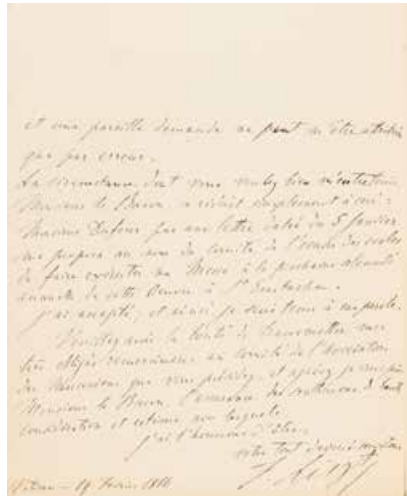 et une pareille demande ne peut m'être attribuée
que par erreur.
La circonstance dont vous voulez bien m'entretenir
Monsieur le Baron, se réduit simplement à ceci:
Monsieur Dufour par une lettre datée du 5 Janvier
me proposa au nom du comité de l'
de faire exécuter ma Messe à la prochaine
de cette Oeuvre à St Eustache.
J'ai accepté, et ainsi je serai tenu à ma parole.
Veuillez avoir la bonté de transmettre mes
très obligés remercîments au comité de l'Association
des Musiciens que vous présidez, et agréez je vous prie
Monsieur le Baron, l'assurance des sentiments de haute
considération et estime avec lesquels
j'ai l'honneur d'être
votre tout dévoué
F. Liszt
19 février 1866